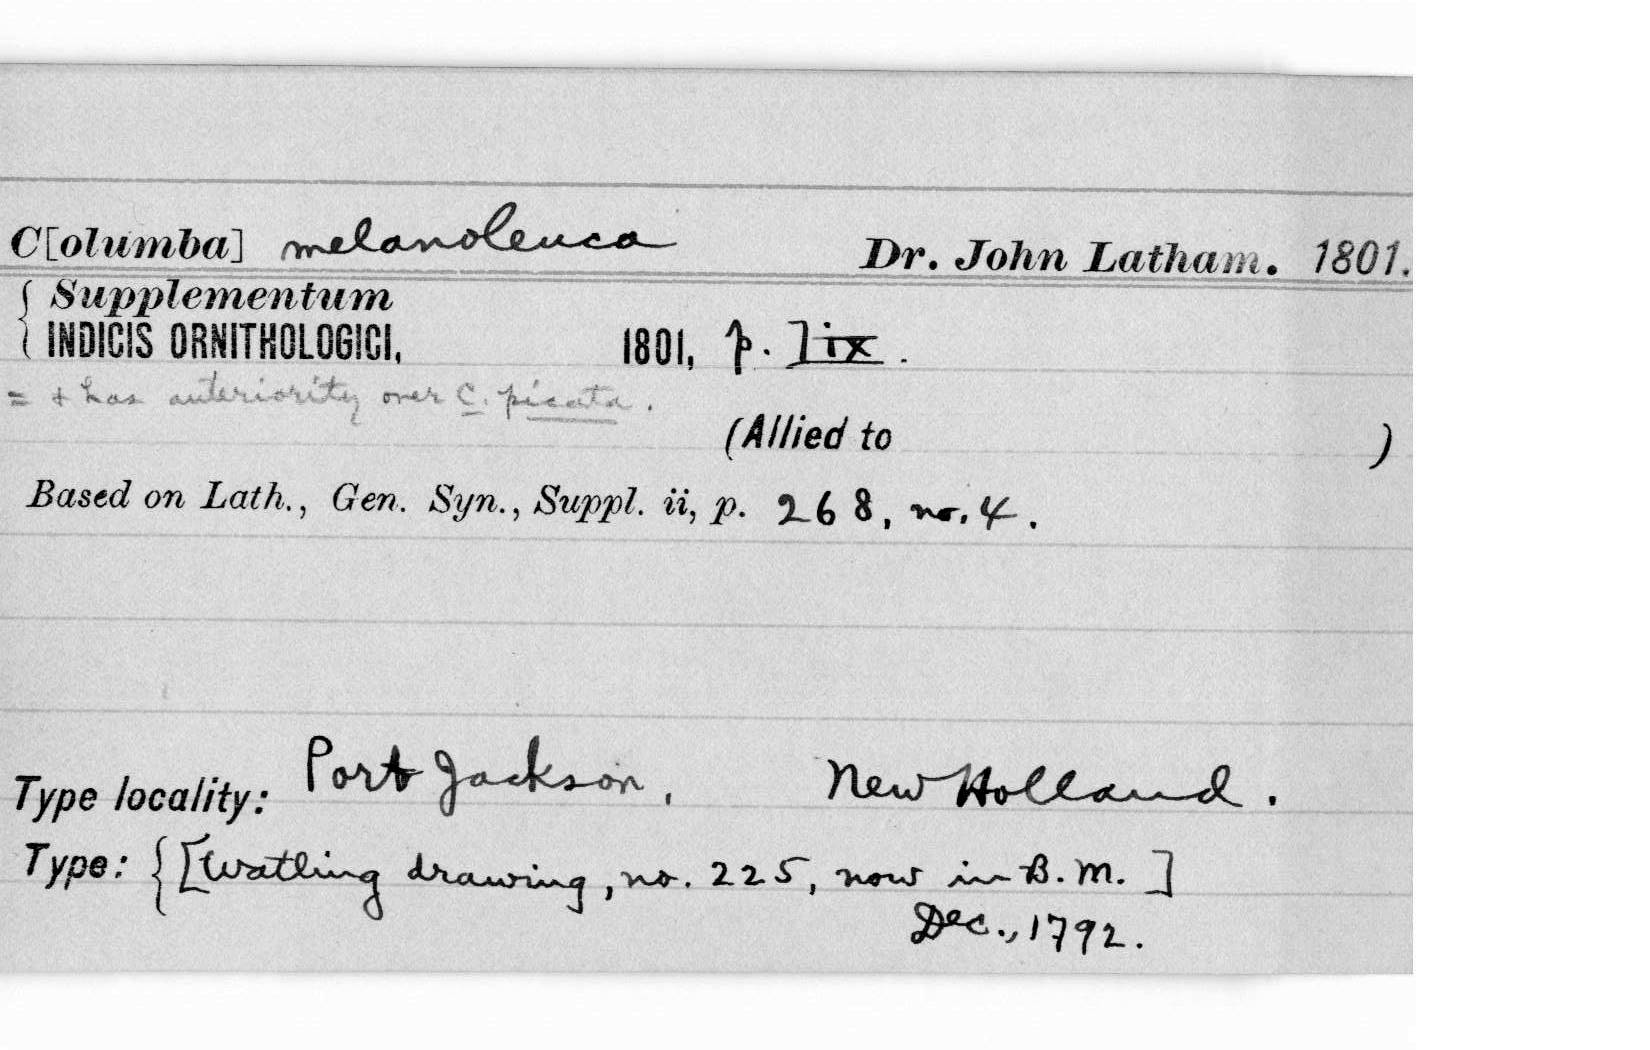 C[olumba] melanoleuca Dr. John Latham. 1801.
{ Supplementum
INDICIS ORNITHOLOGICI, 1801, p. lix.
= & has anteriority over C. picata.
(Allied to )
Based on Lath., Gen. Syn., Suppl. ii, p. 268, no. 4.
Type locality: Port Jackson, New Holland.
Type: {[Watling drawing, no. 225, now in B. M.]
Dec., 1792.